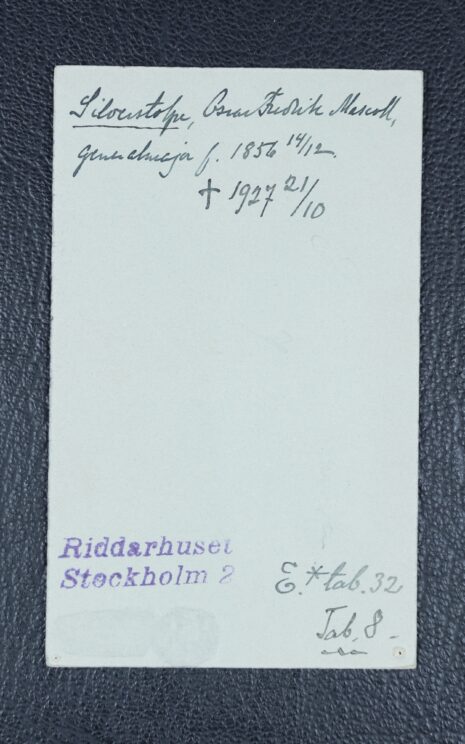 Silverstolpe, Oscar Fredrik Mascoll,
generalmajor f. 1856 14/12.
† 1927 21/10
Riddarhuset
Stockholm 2
E.* tab. 32
Tab. 8.